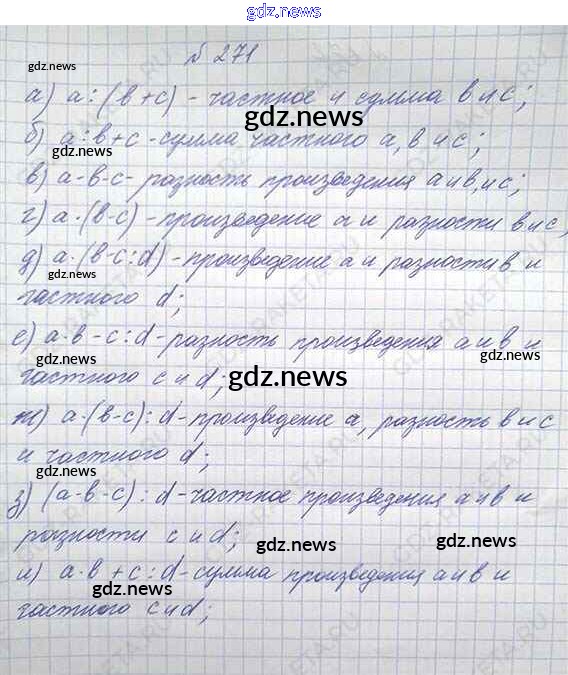 gdz.news
№ 271
gdz.news
а) a : (в + с) - частное и сумма в и с;
gdz.news
б) а : в + с - сумма частного а, в и с;
gdz.news
в) а - в - с - разность произведения а и в, и с;
г) а · (в - с) - произведение а и разности в и с,
д) а · (в - с : d) - произведение а и разности в и
gdz.news
частного d;
е) а · в - с : d - разность произведения а и в и
gdz.news gdz.news
частного с и d;
gdz.news
ж) а · (в - с) : d - произведение а, разность в и с
и частного d;
gdz.news
з) (а · в - с) : d - частное произведения а и в и
разности с и d;
gdz.news gdz.news
и) а · в + с : d - сумма произведения а и в и
gdz.news
частного с и d;